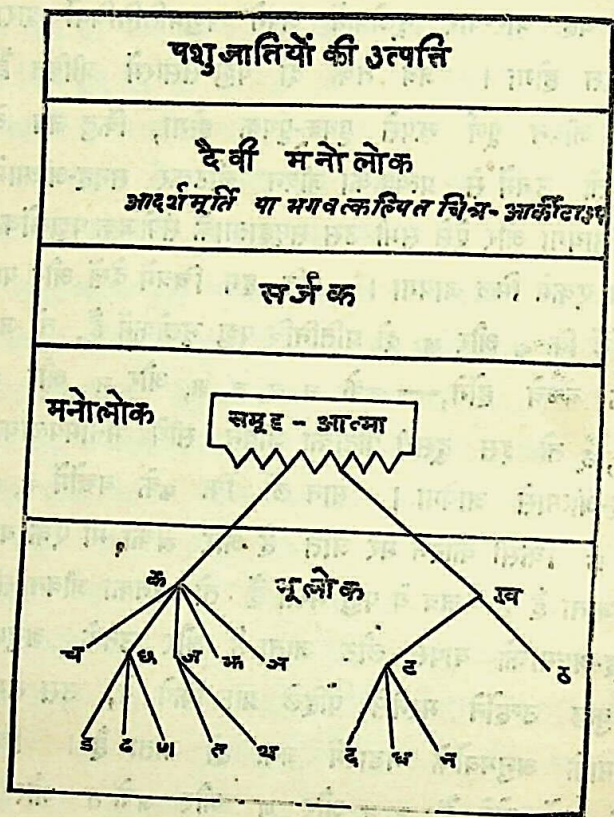 पशुजातियों की उत्पत्ति
दैवी मनोलोक
आदर्शमूर्ति या भगवत्कल्पित चित्र-आर्कीटाइप
सर्जक
मनोलोक
समूह - आत्मा
क भूलोक ख
च छ ज झ ञ ट ठ
ड ढ ण त थ द ध न